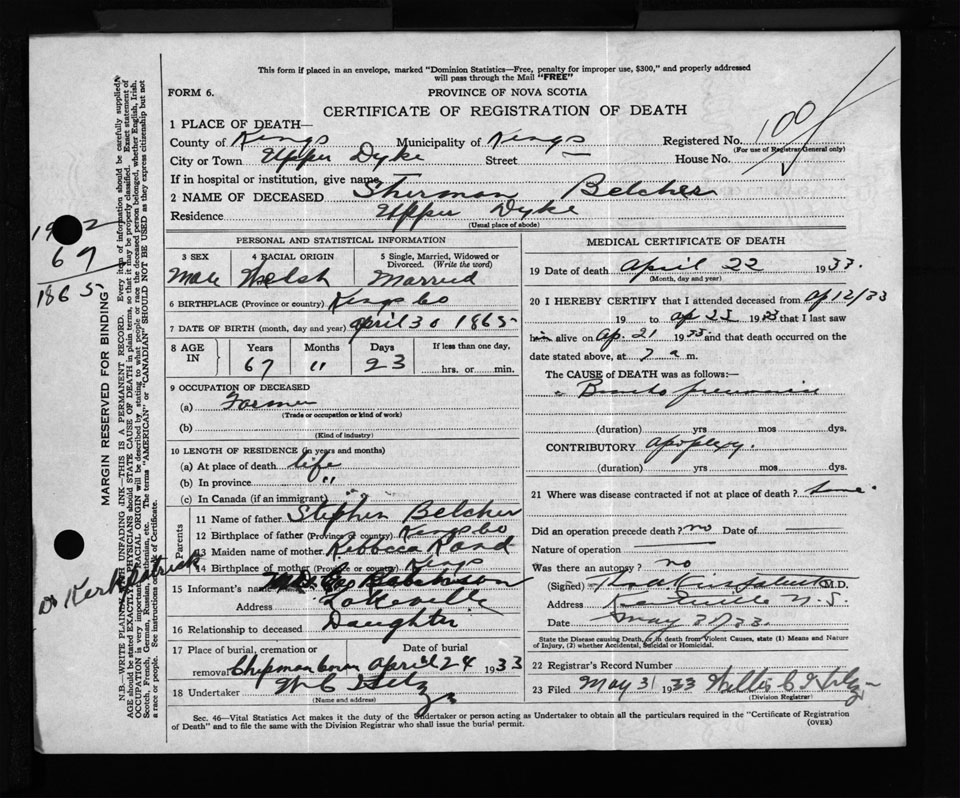 This form if placed in an envelope, marked "Dominion Statistics—Free, penalty for improper use, $300," and properly addressed
will pass through the Mail "FREE"
FORM 6.
PROVINCE OF NOVA SCOTIA
CERTIFICATE OF REGISTRATION OF DEATH
1 PLACE OF DEATH—
County of Kings Municipality of Kings Registered No. 100
(For use of Registrar General only)
City or Town Upper Dyke Street — House No.
If in hospital or institution, give name
2 NAME OF DECEASED Sherman Belcher
Residence Upper Dyke
(Usual place of abode)
PERSONAL AND STATISTICAL INFORMATION
3 SEX 4 RACIAL ORIGIN 5 Single, Married, Widowed or
Divorced. (Write the word)
Male Welsh Married
6 BIRTHPLACE (Province or country) Kings Co
7 DATE OF BIRTH (month, day and year) April 30 1865
8 AGE IN Years Months Days If less than one day,
67 " 23 hrs. or min.
9 OCCUPATION OF DECEASED
(a) Farmer
(Trade or occupation or kind of work)
(b)
(Kind of industry)
10 LENGTH OF RESIDENCE (in years and months)
(a) At place of death life
(b) In province "
(c) In Canada (if an immigrant) "
Parents
11 Name of father Stephen Belcher
12 Birthplace of father (Province or country) Kings Co
13 Maiden name of mother Rebbeca Rand
14 Birthplace of mother (Province or country) Kings
15 Informant's name
Address Lakeville
16 Relationship to deceased Daughter
17 Place of burial, cremation or Date of burial
removal Chipman Corner April 24 1933
18 Undertaker W C
(Name and address)
MEDICAL CERTIFICATE OF DEATH
19 Date of death April 22 1933.
(Month, day and year)
20 I HEREBY CERTIFY that I attended deceased from Ap 12/33
19 to Ap 1933 that I last saw
him alive on Ap. 21 1933 and that death occurred on the
date stated above, at 7 a m.
The CAUSE of DEATH was as follows:—
Broncho pneumonia
(duration) yrs mos dys.
CONTRIBUTORY apoplexy.
(duration) yrs mos dys.
21 Where was disease contracted if not at place of death?
Did an operation precede death? no Date of
Nature of operation
Was there an autopsy? no
(Signed) M.D.
Address Kentville N.S.
Date May 33.
State the Disease causing Death, or in death from Violent Causes, state (1) Means and Nature
of Injury, (2) whether Accidental, Suicidal or Homicidal.
22 Registrar's Record Number
23 Filed May 3 1933
(Division Registrar)
Sec. 46—Vital Statistics Act makes it the duty of the Undertaker or person acting as Undertaker to obtain all the particulars required in the "Certificate of Registration
of Death" and to file the same with the Division Registrar who shall issue the burial permit.
(OVER)
67
1865
Dr Kirkpatrick
MARGIN RESERVED FOR BINDING
N.B.—WRITE PLAINLY, WITH UNFADING INK—THIS IS A PERMANENT RECORD. Every item of information should be carefully supplied.
AGE should be stated EXACTLY. PHYSICIANS should STATE CAUSE OF DEATH in plain terms, so that it may be properly classified. Exact statement of
OCCUPATION is very important. RACIAL ORIGIN will be described by stating to what people or race the deceased person belonged, whether English, Irish,
Scotch, French, German, Russian, Ruthenian, etc. The terms "AMERICAN" or "CANADIAN" SHOULD NOT BE USED as they express citizenship but not
a race or people. See instructions on back of Certificate.